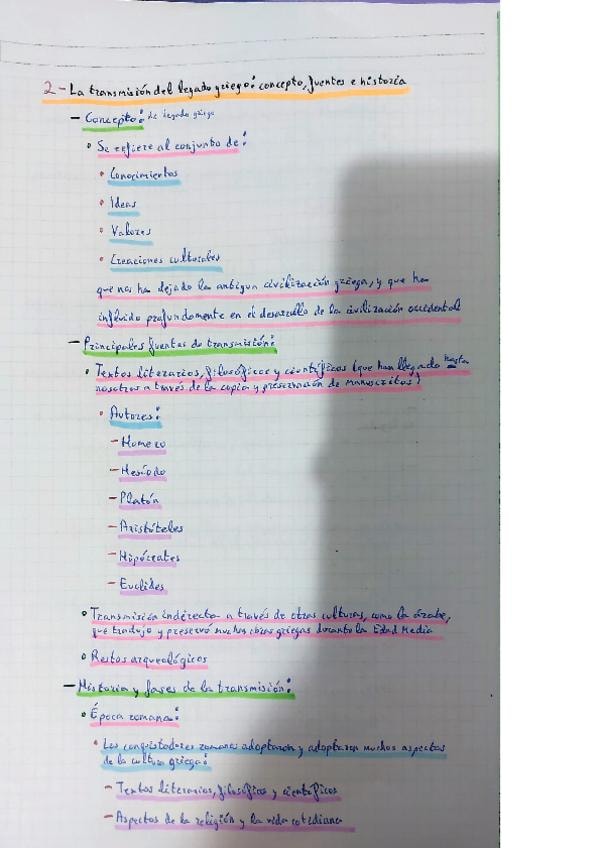 2- La transmisión del legado griego: concepto, fuentes e historia
- Concepto: de legado griego
• Se refiere al conjunto de:
• Conocimientos
• Ideas
• Valores
• Creaciones culturales
que nos ha dejado la antigua civilización griega, y que ha
influido profundamente en el desarrollo de la civilización occidental
- Principales fuentes de transmisión:
• Textos literarios, filosóficos y científicos (que han llegado hasta
nosotros a través de la copia y preservación de manuscritos)
• Autores:
- Homero
- Hesíodo
- Platón
- Aristóteles
- Hipócrates
- Euclides
• Transmisión indirecta a través de otras culturas, como la árabe,
que tradujo y preservó muchas obras griegas durante la Edad Media
• Restos arqueológicos
- Historia y fases de la transmisión:
• Época romana:
• Los conquistadores romanos adoptaron y adaptaron muchos aspectos
de la cultura griega:
- Textos literarios, filosóficos y científicos
- Aspectos de la religión y la vida cotidiana